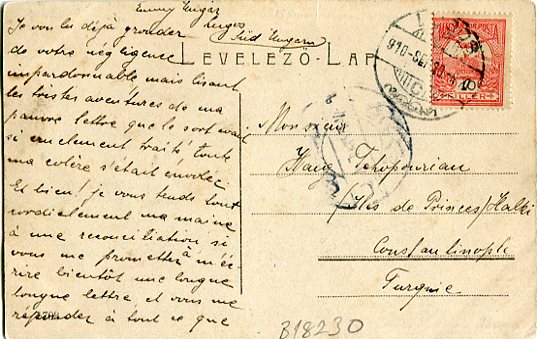 Emmy Ungar
Lugos
Süd Ungarn
Je voulus déjà gronder
de votre négligence
impardonnable mais lisant
les tristes aventures de ma
pauvre lettre que le sort avait
si cruellement traité toute
ma colère s'était envolée
Et bien! je vous tends tout
cordialement ma main
à une reconciliation si
vous me promettez à m'éc-
rire bientôt une longue
longue lettre et vous me
répondez à tout ce que
LEVELEZŐ-LAP
Monsieur
Haig Tchopourian
Iles de Princes/Halki
Constantinople
Turquie
B18230